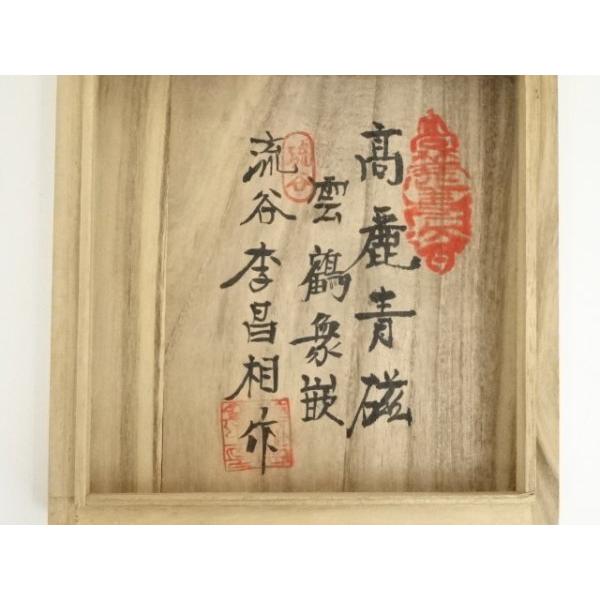 高麗青磁
雲鶴象嵌
流谷李昌相作
流谷